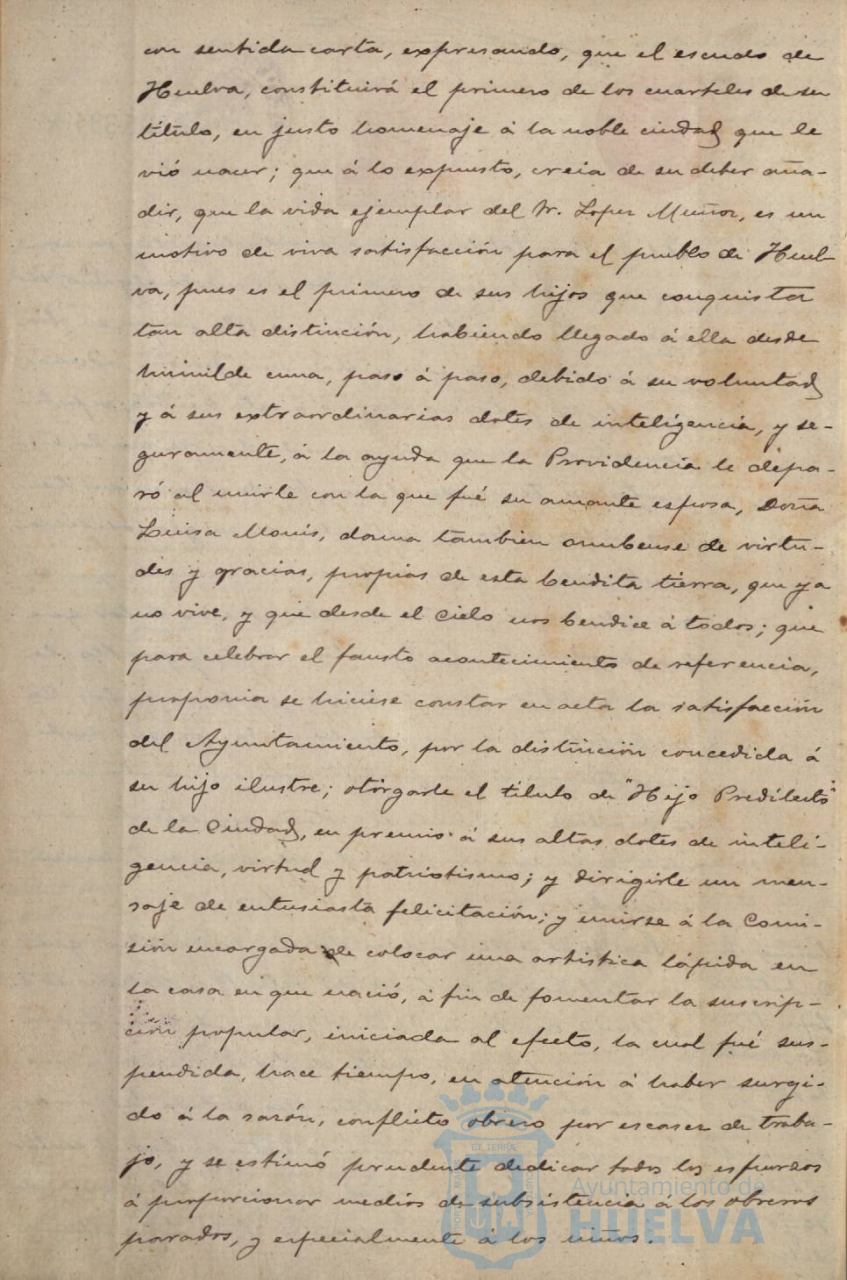 con sentida carta, expresando, que el escudo de
Huelva, constituirá el primero de los cuarteles de su
título, en justo homenaje á la noble ciudad que le
vió nacer; que á lo expuesto, creia de su deber aña-
dir, que la vida ejemplar del Sr. Lopez Muñoz, es un
motivo de viva satisfacción para el pueblo de Huel-
va, pues es el primero de sus hijos que conquista
tan alta distinción, habiendo llegado á ella desde
humilde cuna, paso á paso, debido á su voluntad
y á sus extraordinarias dotes de inteligencia, y se-
guramente, á la ayuda que la Providencia le depa-
ró al unirle con la que fué su amante esposa, Doña
Luisa Monís, dama tambien onubense de virtu-
des y gracias, propias de esta bendita tierra, que ya
no vive, y que desde el Cielo nos bendice á todos; que
para celebrar el fausto acontecimiento de referencia,
proponia se hiciese constar en acta la satisfacción
del Ayuntamiento, por la distinción concedida á
su hijo ilustre; otorgarle el título de "Hijo Predilecto"
de la Ciudad, en premio á sus altas dotes de inteli-
gencia, virtud y patriotismo; y dirigirle un men-
saje de entusiasta felicitación; y unirse á la Comi-
sión encargada de colocar una artistica lápida en
la casa en que nació, á fin de fomentar la suscrip-
ción popular, iniciada al efecto, la cual fué sus-
pendida, hace tiempo, en atención á haber surgi-
do á la sazón, conflicto obrero por escasez de traba-
jo, y se estimó prudente dedicar todos los esfuerzos
á proporcionar medios de subsistencia á los obreros
parados, y especialmente á los niños.
Ayuntamiento de
HUELVA